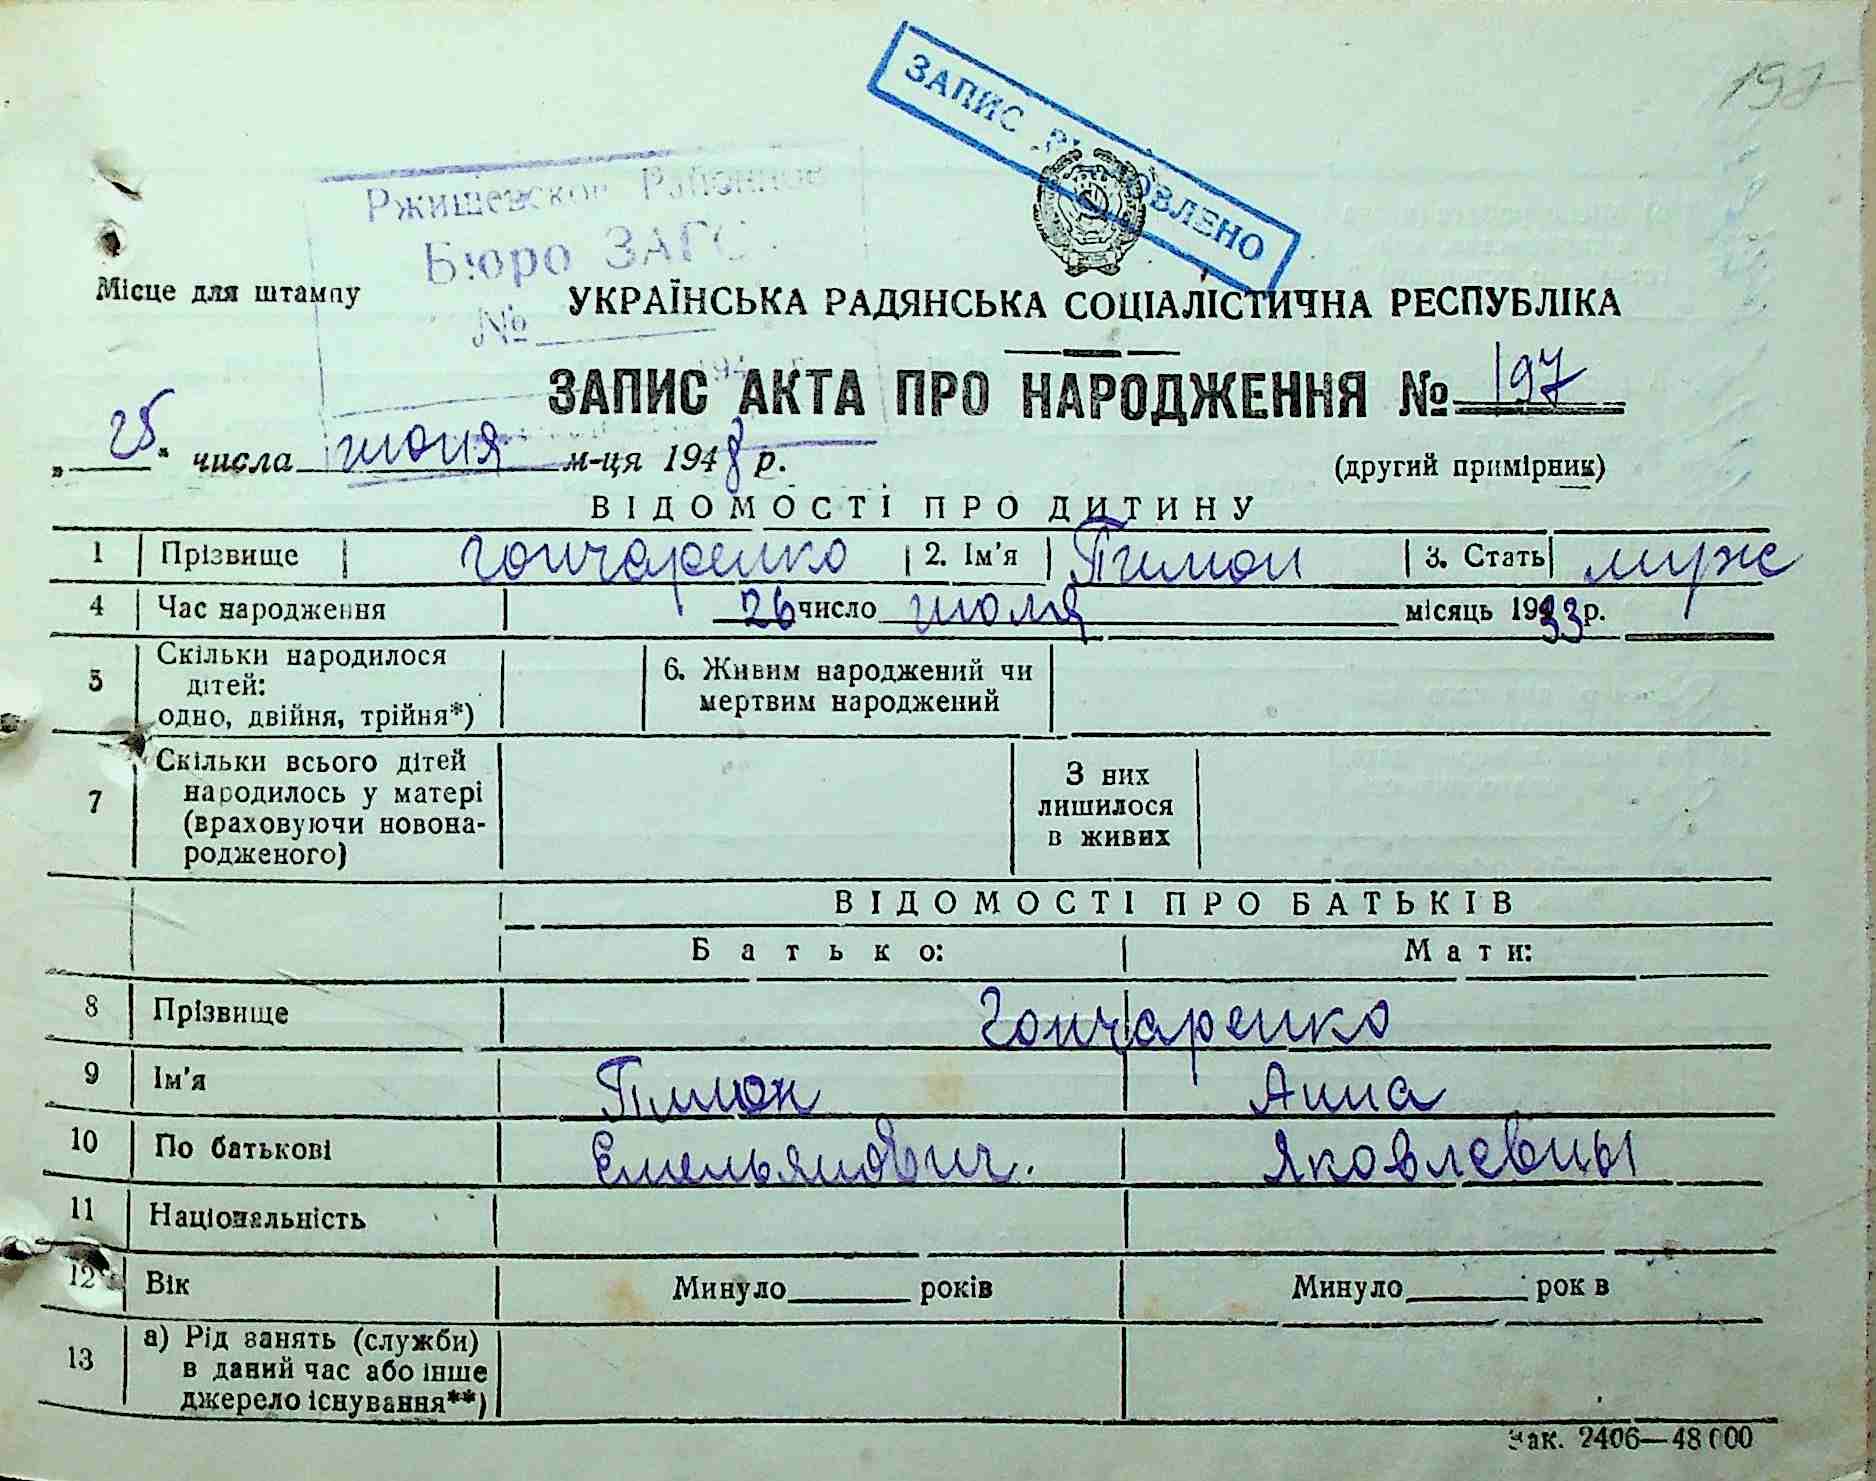 197
ЗАПИС ВІДНОВЛЕНО
Ржищевское Районное
Бюро ЗАГС
Місце для штампу
№
УКРАЇНСЬКА РАДЯНСЬКА СОЦІАЛІСТИЧНА РЕСПУБЛІКА
ЗАПИС АКТА ПРО НАРОДЖЕННЯ № 197
„25" числа июня м-ця 1948 р.
(другий примірник)
ВІДОМОСТІ ПРО ДИТИНУ
1 Прізвище Гончаренко 2. Ім'я Пимон 3. Стать муж
4 Час народження 26 число июля місяць 1933 р.
5 Скільки народилося
дітей:
одно, двійня, трійня*)
6. Живим народжений чи
мертвим народжений
7 Скільки всього дітей
народилось у матері
(враховуючи новона-
родженого)
З них
лишилося
в живих
ВІДОМОСТІ ПРО БАТЬКІВ
Батько: Мати:
8 Прізвище Гончаренко
9 Ім'я Пимон Анна
10 По батькові Емельянович. Яковлевны
11 Національність
12 Вік Минуло років Минуло рок в
13 а) Рід занять (служби)
в даний час або інше
джерело існування**)
Зак. 2406—48000